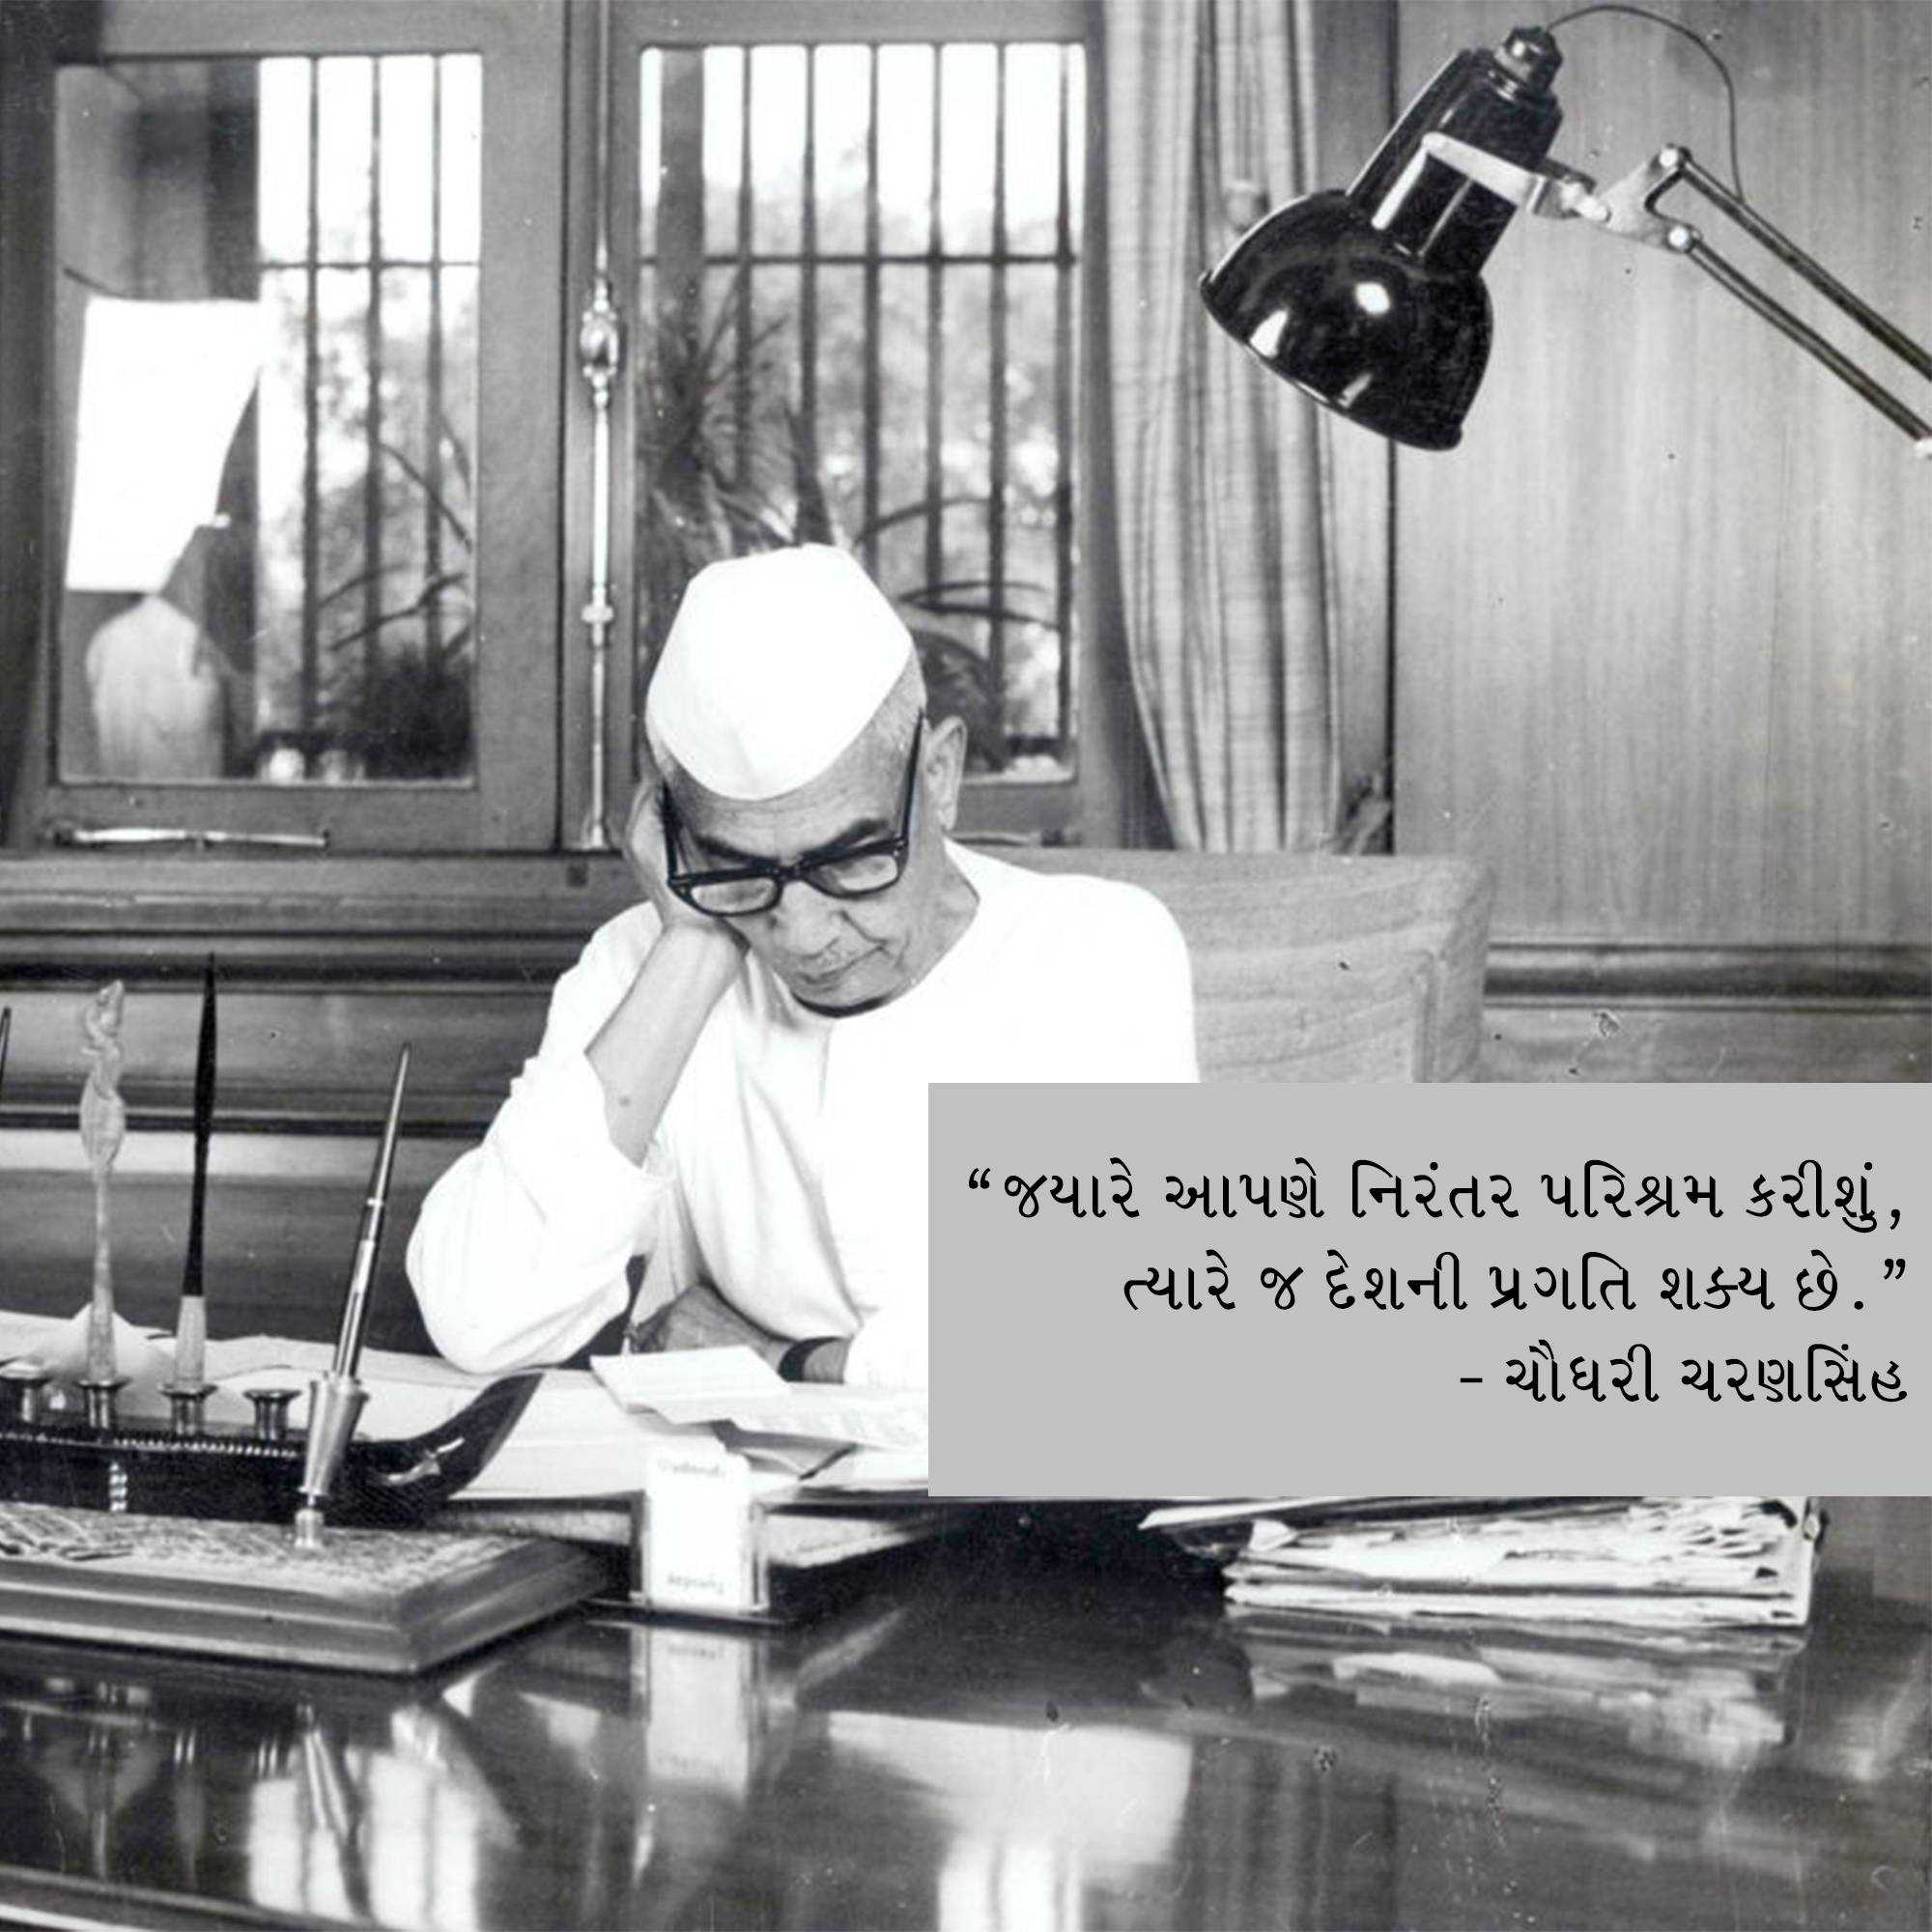 “જયારે આપણે નિરંતર પરિશ્રમ કરીશું,
ત્યારે જ દેશની પ્રગતિ શક્ય છે.”
- ચૌધરી ચરણસિંહ